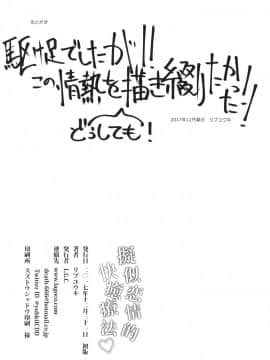 あとがき
駆け足でしたが!!
この情熱を描き綴りたかったー!
どうしても!
2017年12月発行 リブユウキ
擬似恋情的
快感療法♡
発行日 二〇一七年十二月三十一日 初版
著者 リブユウキ
発行者 L.E.C.
連絡先
印刷所 スズトウシャドウ印刷 様